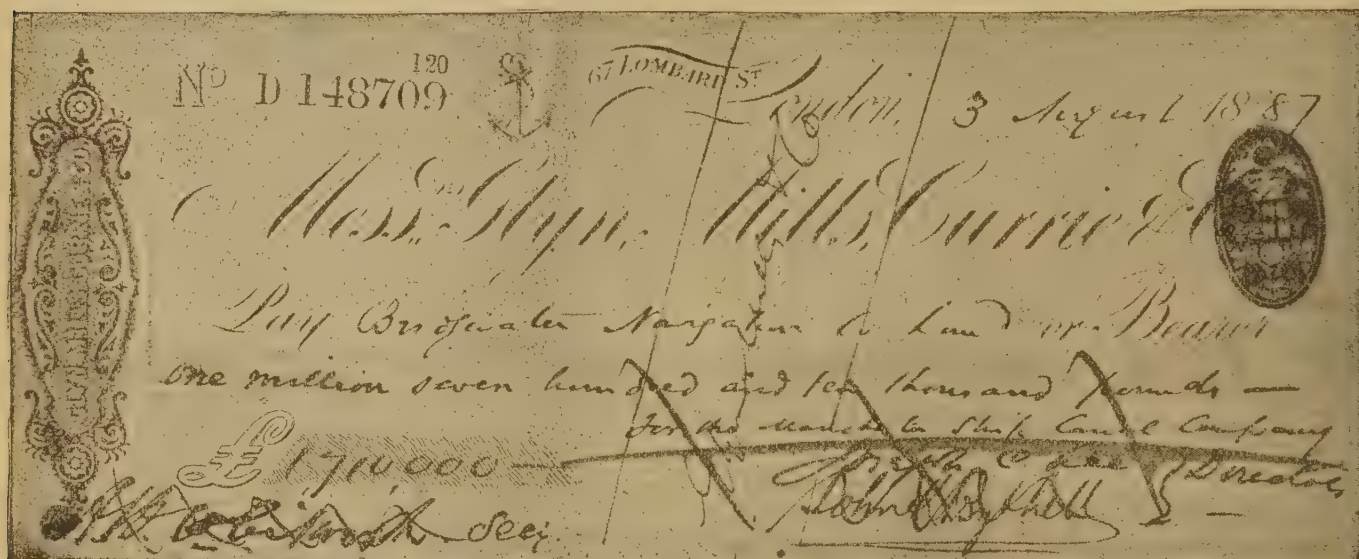 120
Nº D 148709
67 LOMBARD ST
London, 3 August 1887
Messrs Glyn, Mills, Currie & Co
Pay Bridgwater Navigation Co Limd or Bearer
one million seven hundred and ten thousand pounds —
for the Manchester Ship Canal Company
£ 1710000 —
Joseph C Lee Directors
John K Bythell
Secy.
& Co